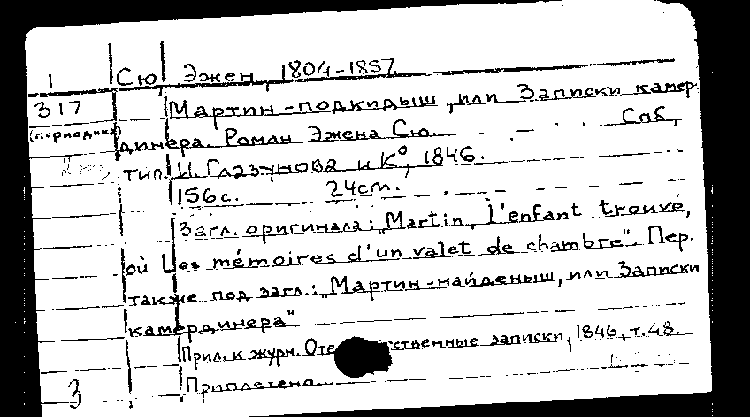 1 Сю Эжен, 1804-1857
317 Мартин-подкидыш, или Записки камер-
(периодика) динера. Роман Эжена Сю. Спб,
тип. И. Глазунова и К°, 1846.
156 с. 24 cm.
Загл. оригинала: "Martin, l'enfant trouvé,
où Les mémoires d'un valet de chambre". Пер.
также под загл.: "Мартин-найденыш, или Записки
камердинера"
Прил. к журн. Оте ственные записки, 1846, т. 48.
3 Приплетено.